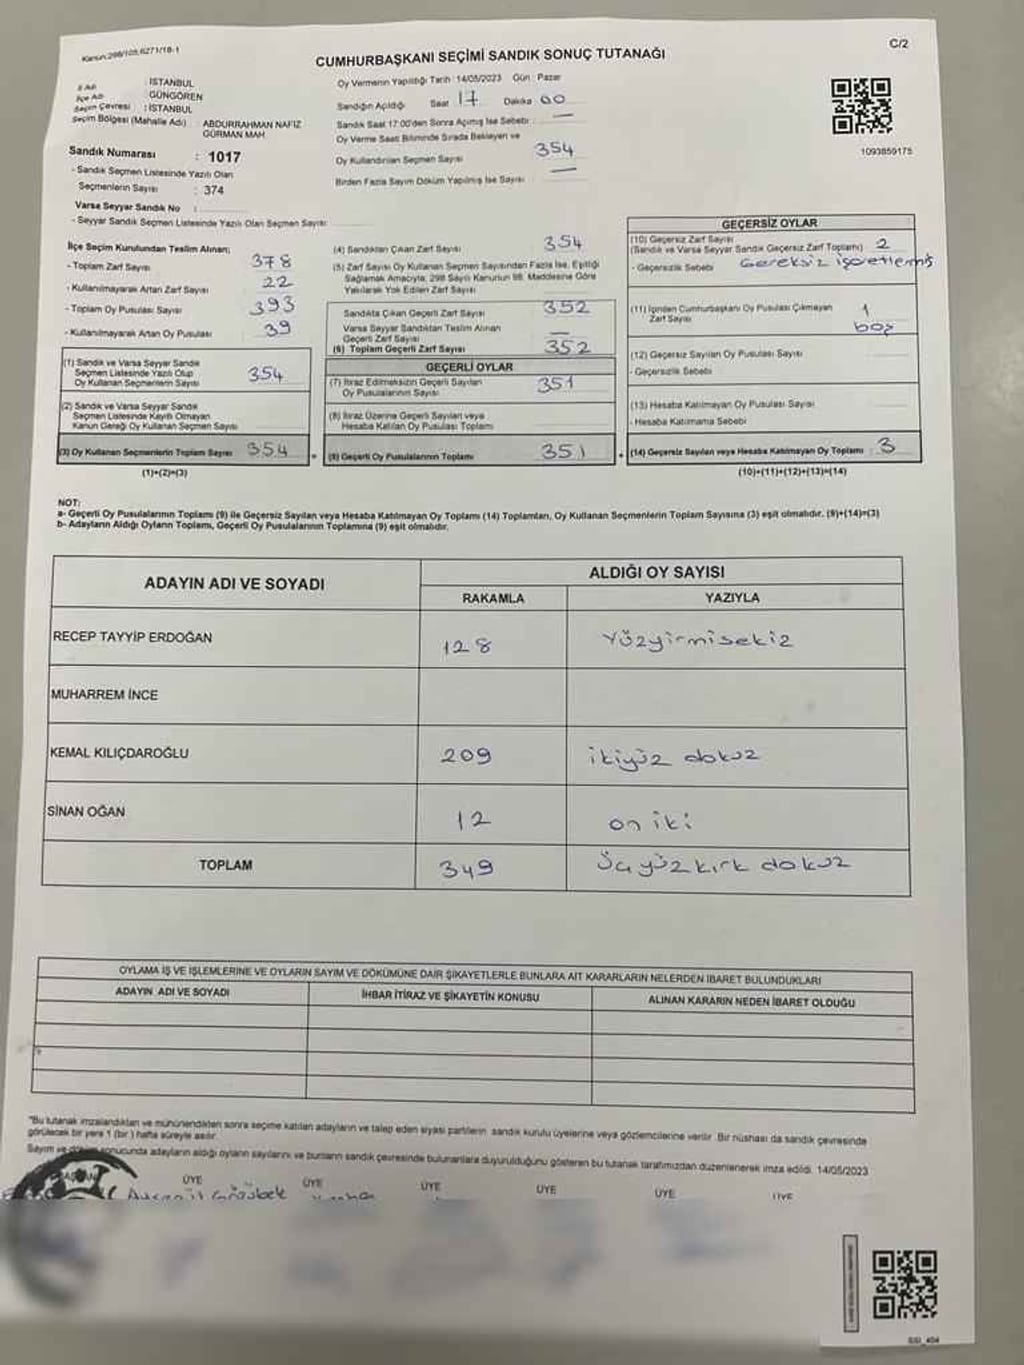 Kanun:298/105;6271/18-1
C/2
CUMHURBAŞKANI SEÇİMİ SANDIK SONUÇ TUTANAĞI
İl Adı : İSTANBUL
İlçe Adı : GÜNGÖREN
Seçim Çevresi : İSTANBUL
Seçim Bölgesi (Mahalle Adı) : ABDURRAHMAN NAFIZ
GÜRMAN MAH
Sandık Numarası : 1017
- Sandık Seçmen Listesinde Yazılı Olan
Seçmenlerin Sayısı : 374
Varsa Seyyar Sandık No :
- Seyyar Sandık Seçmen Listesinde Yazılı Olan Seçmen Sayısı
Oy Vermenin Yapıldığı Tarih : 14/05/2023 Gün : Pazar
Sandığın Açıldığı Saat 17 Dakika 00
Sandık Saat 17:00'den Sonra Açımış İse Sebebi : —
Oy Verme Saati Bitiminde Sırada Bekleyen ve
Oy Kullandırılan Seçmen Sayısı 354
Birden Fazla Sayım Döküm Yapılmış İse Sayısı —
1093859175
İlçe Seçim Kurulundan Teslim Alınan;
- Toplam Zarf Sayısı 378
- Kullanılmayarak Artan Zarf Sayısı 22
- Toplam Oy Pusulası Sayısı 393
- Kullanılmayarak Artan Oy Pusulası 39
(1) Sandık ve Varsa Seyyar Sandık
Seçmen Listesinde Yazılı Olup
Oy Kullanan Seçmenlerin Sayısı 354
(2) Sandık ve Varsa Seyyar Sandık
Seçmen Listesinde Kayıtlı Olmayan
Kanun Gereği Oy Kullanan Seçmen Sayısı
(3) Oy Kullanan Seçmenlerin Toplam Sayısı 354
(1)+(2)=(3)
(4) Sandıktan Çıkan Zarf Sayısı 354
(5) Zarf Sayısı Oy Kullanan Seçmen Sayısından Fazla İse, Eşitliği
Sağlamak Amacıyla, 298 Sayılı Kanunun 98. Maddesine Göre
Yakılarak Yok Edilen Zarf Sayısı
Sandıkta Çıkan Geçerli Zarf Sayısı 352
Varsa Seyyar Sandıktan Teslim Alınan
Geçerli Zarf Sayısı —
(6) Toplam Geçerli Zarf Sayısı 352
GEÇERLİ OYLAR
(7) İtiraz Edilmeksizin Geçerli Sayılan
Oy Pusulalarının Sayısı 351
(8) İtiraz Üzerine Geçerli Sayılan veya
Hesaba Katılan Oy Pusulası Toplamı
(9) Geçerli Oy Pusulalarının Toplamı 351
GEÇERSİZ OYLAR
(10) Geçersiz Zarf Sayısı
(Sandık ve Varsa Seyyar Sandık Geçersiz Zarf Toplamı) 2
- Geçersizlik Sebebi Gereksiz işaretlemiş
(11) İçinden Cumhurbaşkanı Oy Pusulası Çıkmayan 1
Zarf Sayısı boş
(12) Geçersiz Sayılan Oy Pusulası Sayısı
- Geçersizlik Sebebi
(13) Hesaba Katılmayan Oy Pusulası Sayısı
- Hesaba Katılmama Sebebi
(14) Geçersiz Sayılan veya Hesaba Katılmayan Oy Toplamı : 3
(10)+(11)+(12)+(13)=(14)
NOT:
a- Geçerli Oy Pusulalarının Toplamı (9) ile Geçersiz Sayılan veya Hesaba Katılmayan Oy Toplamı (14) Toplamları, Oy Kullanan Seçmenlerin Toplam Sayısına (3) eşit olmalıdır. (9)+(14)=(3)
b- Adayların Aldığı Oyların Toplamı, Geçerli Oy Pusulalarının Toplamına (9) eşit olmalıdır.
ADAYIN ADI VE SOYADI
ALDIĞI OY SAYISI
RAKAMLA YAZIYLA
RECEP TAYYİP ERDOĞAN 128 Yüzyirmisekiz
MUHARREM İNCE
KEMAL KILIÇDAROĞLU 209 ikiyüz dokuz
SİNAN OĞAN 12 on iki
TOPLAM 349 Üçyüzkırk dokuz
OYLAMA İŞ VE İŞLEMLERİNE VE OYLARIN SAYIM VE DÖKÜMÜNE DAİR ŞİKAYETLERLE BUNLARA AİT KARARLARIN NELERDEN İBARET BULUNDUKLARI
ADAYIN ADI VE SOYADI İHBAR İTİRAZ VE ŞİKAYETİN KONUSU ALINAN KARARIN NEDEN İBARET OLDUĞU
"Bu tutanak imzalandıktan ve mühürlendikten sonra seçime katılan adayların ve talep eden siyasi partilerin sandık kurulu üyelerine veya gözlemcilerine verilir. Bir nüshası da sandık çevresinde
görülecek bir yere 1 (bir) hafta süreyle asılır.
Sayım ve döküm sonucunda adayların aldığı oyların sayılarını ve bunların sandık çevresinde bulunanlara duyurulduğunu gösteren bu tutanak tarafımızdan düzenlenerek imza edildi. 14/05/2023
BAŞKAN ÜYE ÜYE ÜYE ÜYE ÜYE ÜYE